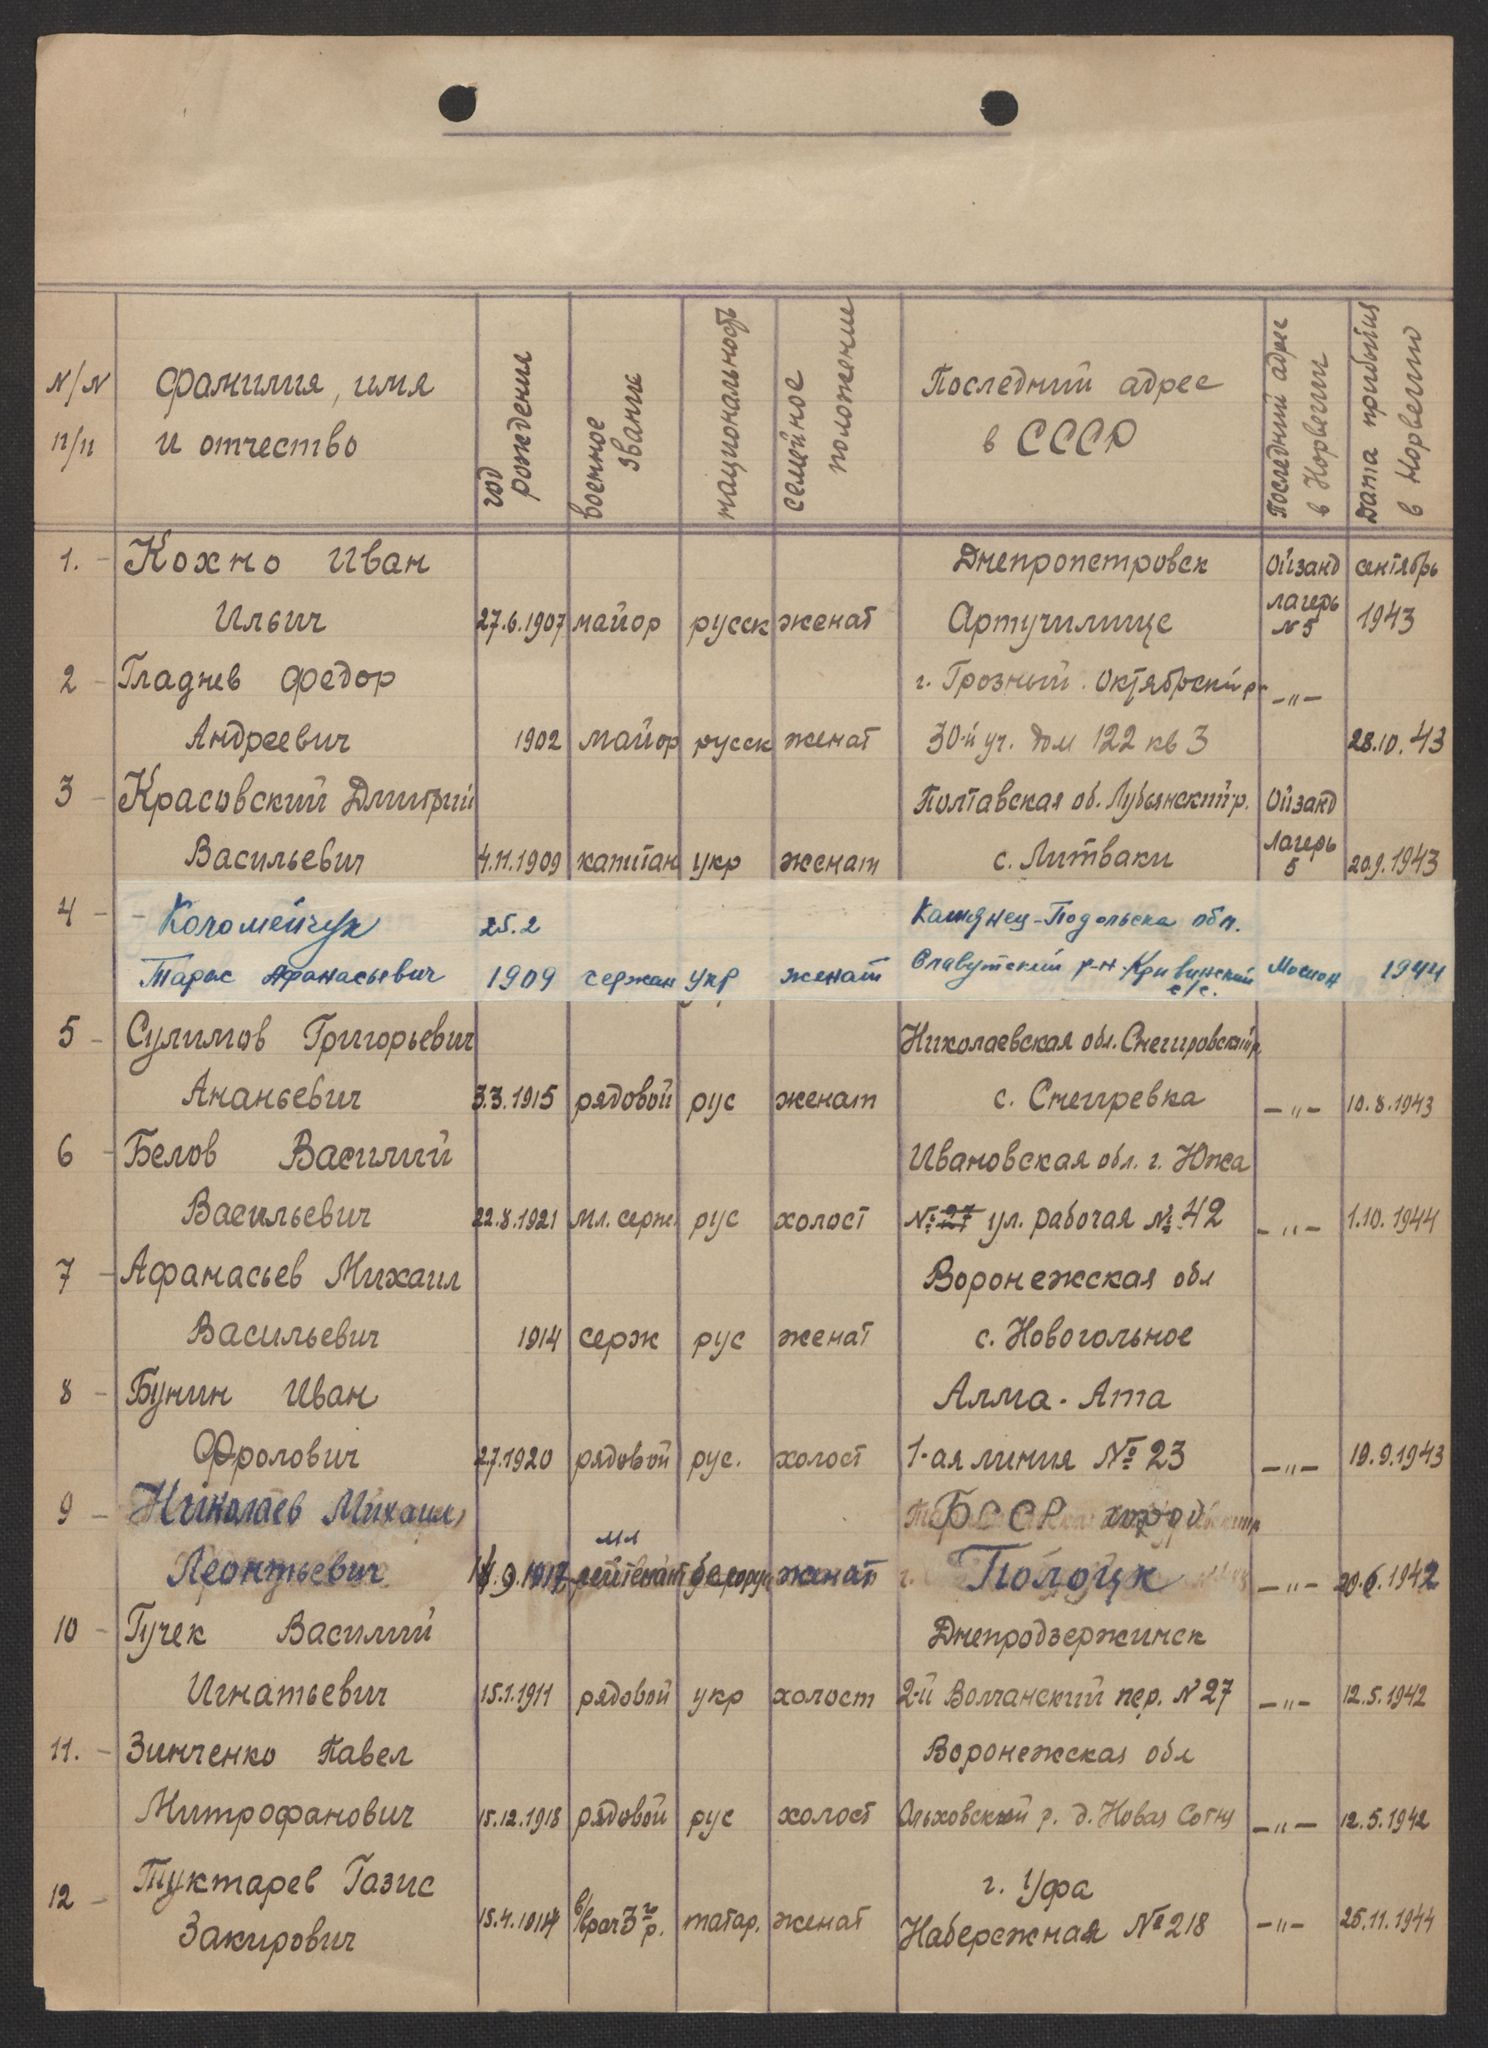 N/N п/п
фамилия, имя и отчество
год рождения
военное звание
национальность
семейное положение
Последний адрес в СССР
Последний адрес в Норвегии
Дата прибытия в Норвегии
1. - Кохно Иван Днепропетровск Ойзанд сентябрь
Ильич 27.6.1907 майор русск женат Артучилище лагерь N 5 1943
2 - Гладнев Федор г. Грозный. Октябрьский р- -"-
Андреевич 1902 майор русск женат 30-й уч. дом 122 кв 3 28.10.43
3 - Красовский Дмитрий Полтавская об. Лубянский р. Ойзанд
Васильевич 4.11.1909 капитан укр женат с. Литваки Лагерь 5 20.9.1943
4 - Коломейчук 25.2 Камянец-Подольска обл.
Тарас Афанасьевич 1909 сержан укр женат Славутский р-н Кривинский с/с. Мосион 1944
5 - Сулимов Григорьевич Николаевская обл. Снегировский р
Ананьевич 3.3.1915 рядовой рус женат с. Снегиревка -"- 10.8.1943
6 - Белов Василий Ивановская обл. г. Южа
Васильевич 22.8.1921 мл. серж. рус холост ул. рабочая №.42 -"- 1.10.1944
7 - Афанасьев Михаил Воронежская обл
Васильевич 1914 серж рус женат с. Новогольное
8 - Бунин Иван Алма-Ата
Фролович 27.1920 рядовой рус. холост 1-ая линия № 23 -"- 19.9.1943
9 - Николаев Михаил БССР город
Леонтьевич мл лейтенант белорус женат Полоцк -"- 20.6.1942
10 - Гучек Василий Днепродзержинск
Игнатьевич 15.1.1911 рядовой укр холост 2-й Волчанский пер. N 27 -"- 12.5.1942
11. - Зинченко Павел Воронежская обл
Митрофанович 15.12.1918 рядовой рус холост Ольховский р. д. Новая Сотня -"- 12.5.1942
12 - Туктарев Газис г. Уфа
Закирович 15.4.1914 в/врач 3го р. татар. женат Набережная № 218 -"- 25.11.1944